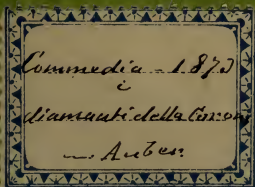 Commedia - 1873
i
diamanti della Corona
Auber